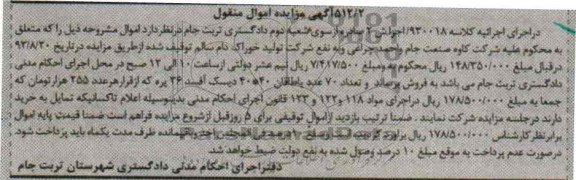 ۵۱۲/۲ آگهی مزایده اموال منقول
دراجرای اجرائیه کلاسه ۹۳۰۰۱۸/اجرا شعبه دوم دادگستری تربت جام درنظردارد اموال مشروحه ذیل را که متعلق
به محکوم علیه شرکت کاوه صنعت جام ومحمد چراغی وبه نفع شرکت تولید خوراک دام سالم توقیف شده ازطریق مزایده درتاریخ ۹۳/۸/۲۰
درقبال مبلغ ۱۴۸/۳۵۰/۰۰۰ ریال محکوم به ومبلغ ۷/۴۱۷/۵۰۰ ریال نیم عشر دولتی ازساعت ۱۰ الی ۱۲ صبح در محل اجرای احکام مدنی
دادگستری تربت جام می باشد به فروش برساند و تعداد ۷۰ عدد یاطاقان ۴۰*۴۰ دیسک آفست ۳۶ پره که ازقرارهرعدد ۲۵۵ هزارتومان که
جمعا به مبلغ ۱۷۸/۵۰۰/۰۰۰ ریال دراجرای مواد ۱۱۸ و۱۲۲ و ۱۲۳ قانون اجرای احکام مدنی بدینوسیله اعلام تاکسانیکه تمایل به خرید
دارند درجلسه مزایده شرکت نمایند . ضمنا ترتیب بازدید ازاموال توقیفی برای ۵ روزقبل ازشروع مزایده فراهم است ضمنا قیمت پایه اموال
برابرنظرکارشناس ۱۷۸/۵۰۰/۰۰۰ ریال برآورد گردیده مانده ظرف مدت یکماه باید پرداخت شود.
درصورت عدم پرداخت به موقع مبلغ ۱۰ درصد وصول شده به نفع دولت ضبط خواهد شد.
دفتراجرای احکام مدنی دادگستری شهرستان تربت جام